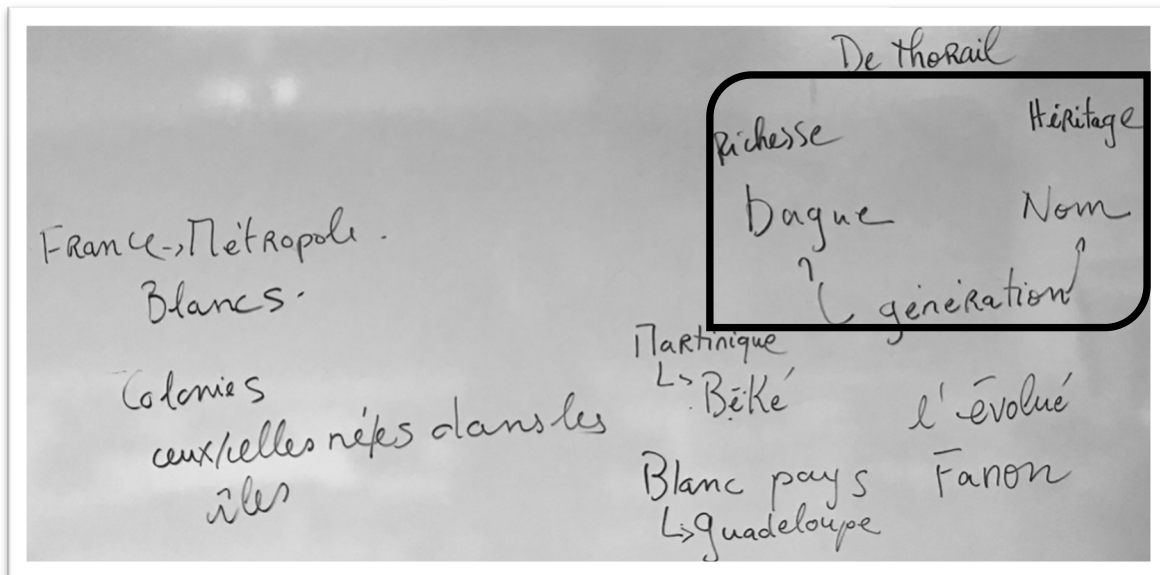 De Thorail
Richesse Héritage
Dague Nom
génération
France -> Métropole.
Blancs.
Colonies
ceux/celles né/es dans les
îles
Martinique
↳ Béké
l'évolué
Fanon
Blanc pays
↳ guadeloupe